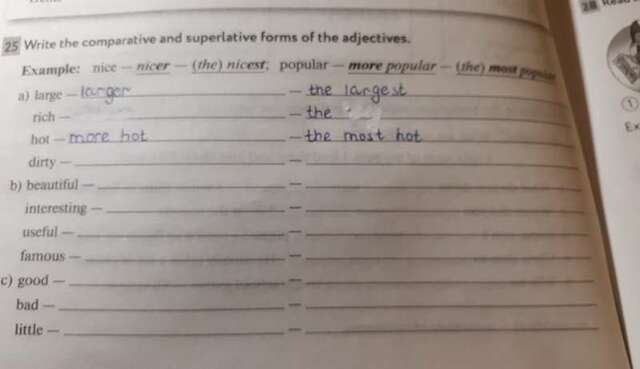 25 Write the comparative and superlative forms of the adjectives.
Example: nice — nicer — (the) nicest; popular — more popular — (the) most popular
a) large — larger — the largest
rich — — the
hot — more hot — the most hot
dirty — —
b) beautiful — —
interesting — —
useful — —
famous — —
c) good — —
bad — —
little — —
28
1
Ex